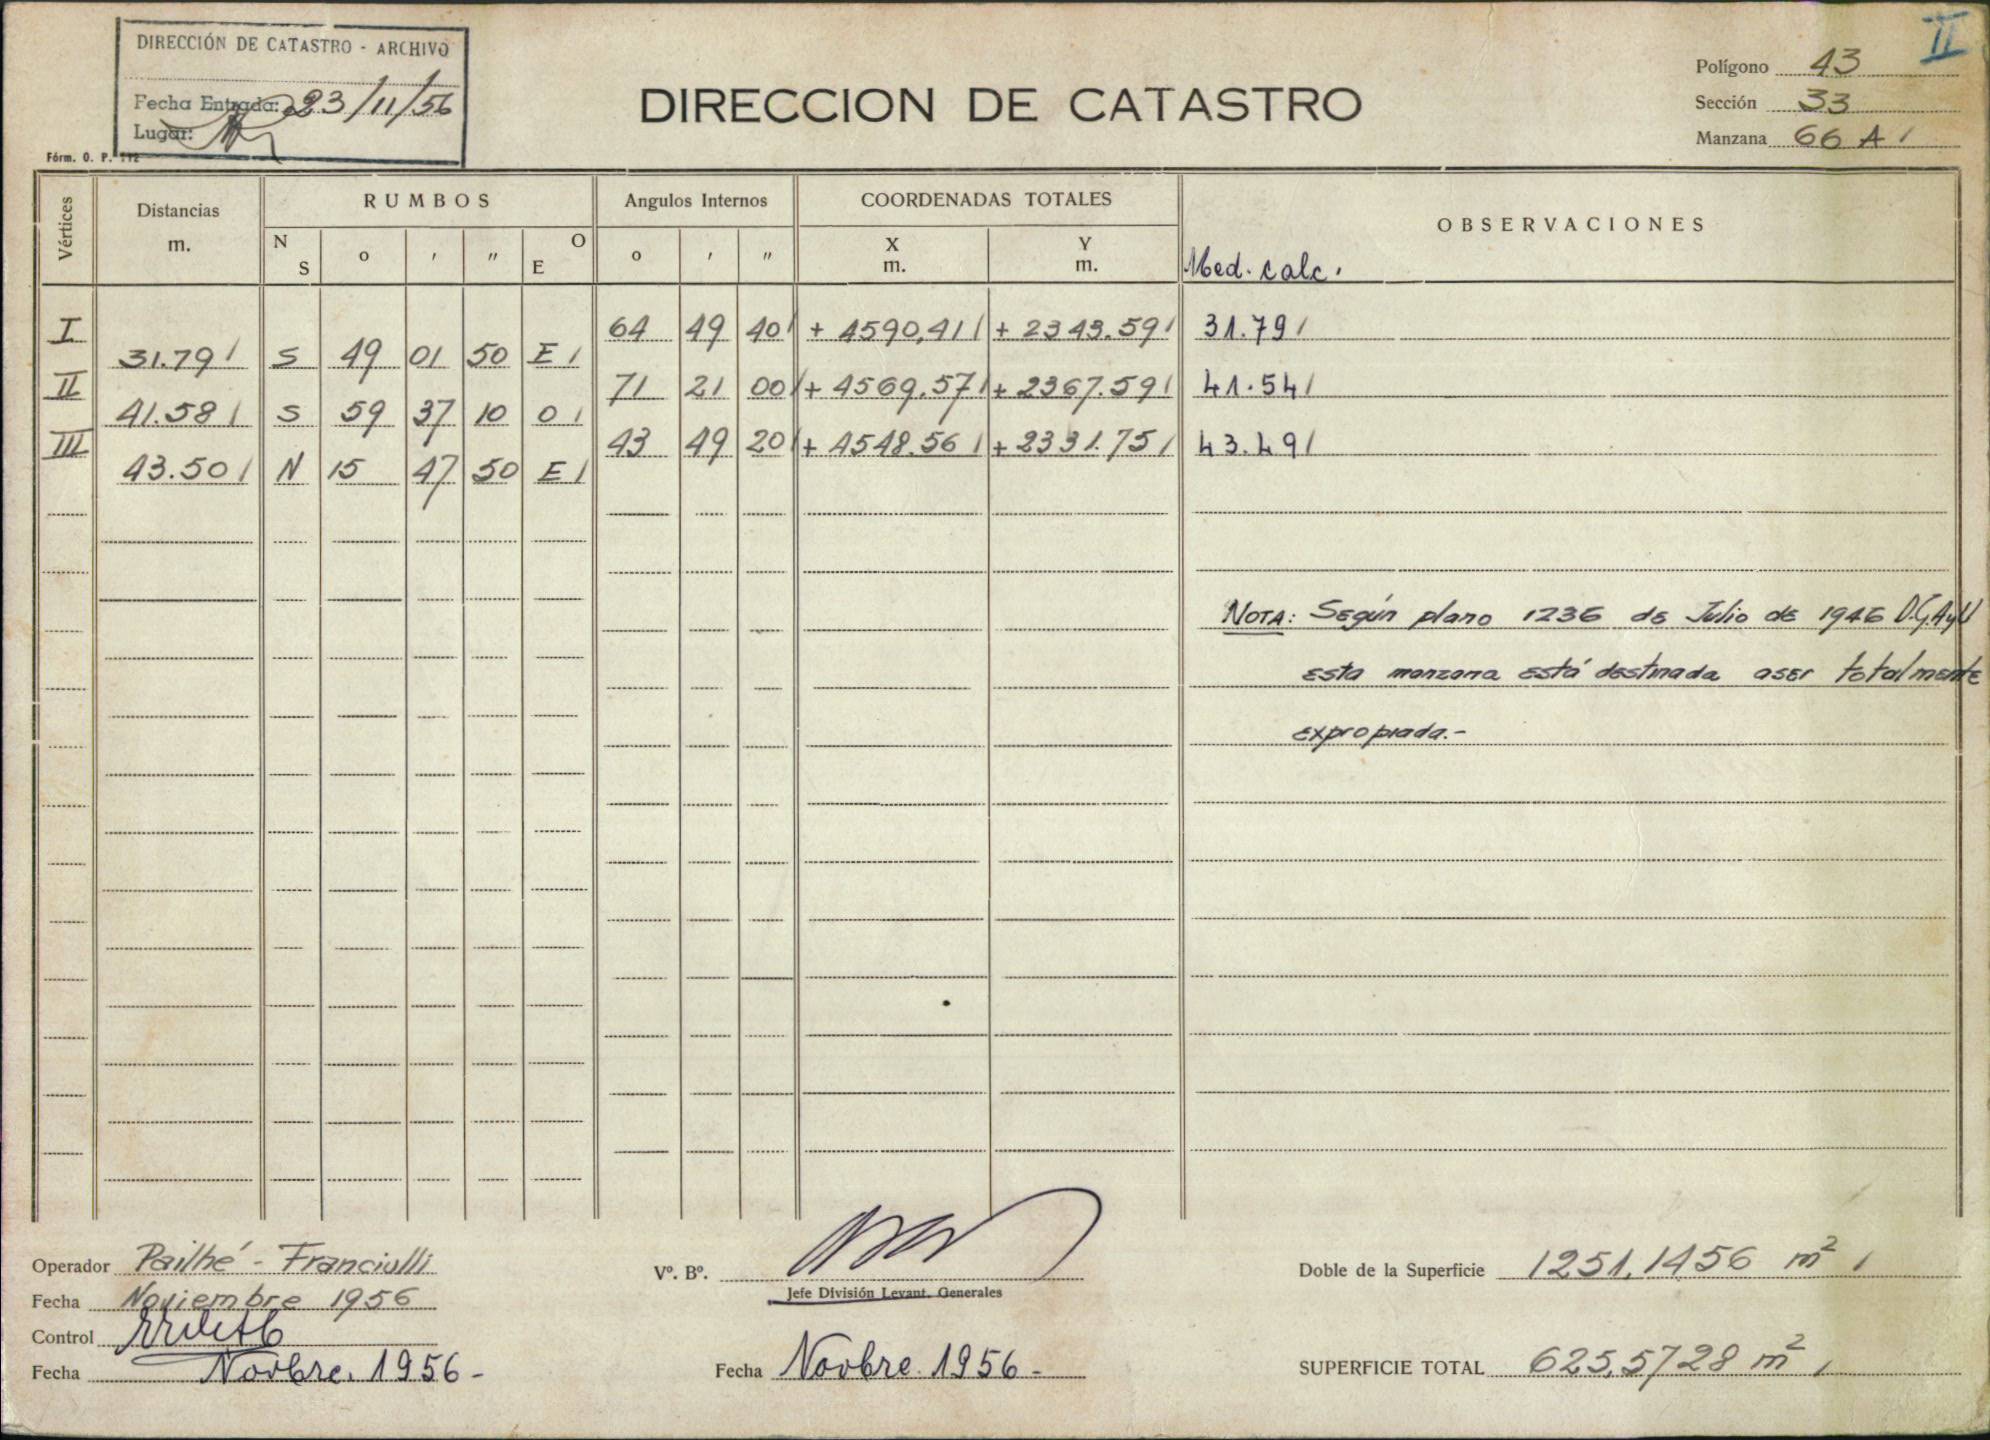 II
DIRECCIÓN DE CATASTRO - ARCHIVO
Fecha Entrada: 23/11/56
Lugar:
Fórm. O. P. 112
DIRECCION DE CATASTRO
Polígono 43
Sección 33
Manzana 66 A /
Vértices Distancias m. RUMBOS Angulos Internos COORDENADAS TOTALES OBSERVACIONES
N S o ′ ″ O E o ′ ″ X m. Y m. Med. calc.
I 64 49 40/ + 4590,41/ + 2343.59/ 31.79/
31.79/ S 49 01 50 E/
II 71 21 00/ + 4569.57/ + 2367.59/ 41.54/
41.58/ S 59 37 10 O/
III 43 49 20/ + 4548.56/ + 2331.75/ 43.49/
43.50/ N 15 47 50 E/
NOTA: Según plano 1236 de Julio de 1946 D.G.AyU
esta manzana está destinada a ser totalmente
expropiada.-
Operador Pailhé - Franciulli
Fecha Noviembre 1956
Control
Fecha Novbre. 1956-
Vº. Bº.
Jefe División Levant. Generales
Fecha Novbre. 1956-
Doble de la Superficie 1251,1456 m² /
SUPERFICIE TOTAL 625,5728 m² /